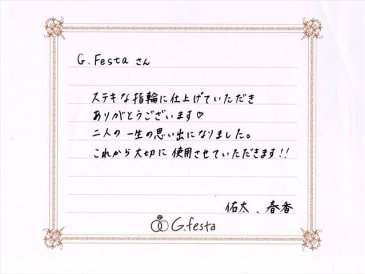 G.Festa さん
ステキな指輪に仕上げていただき
ありがとうございます♡
二人の一生の思い出になりました。
これから大切に使用させていただきます!!
佑太、春香
G.festa